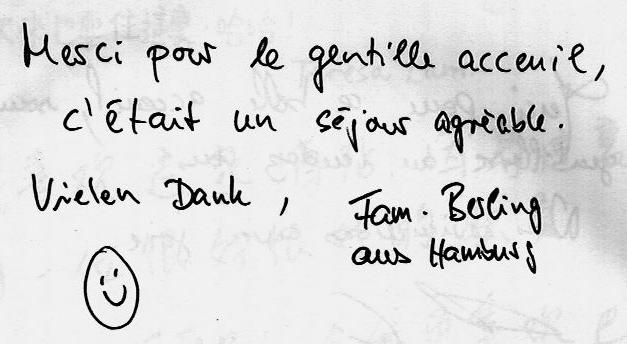 Merci pour le gentille acceuil,
c'était un séjour agréable.
Vielen Dank,
Fam. Berling
aus Hamburg